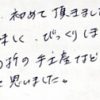 初めて頂きました
味しく、びっくりしま
の折の手土産など
と思いました。